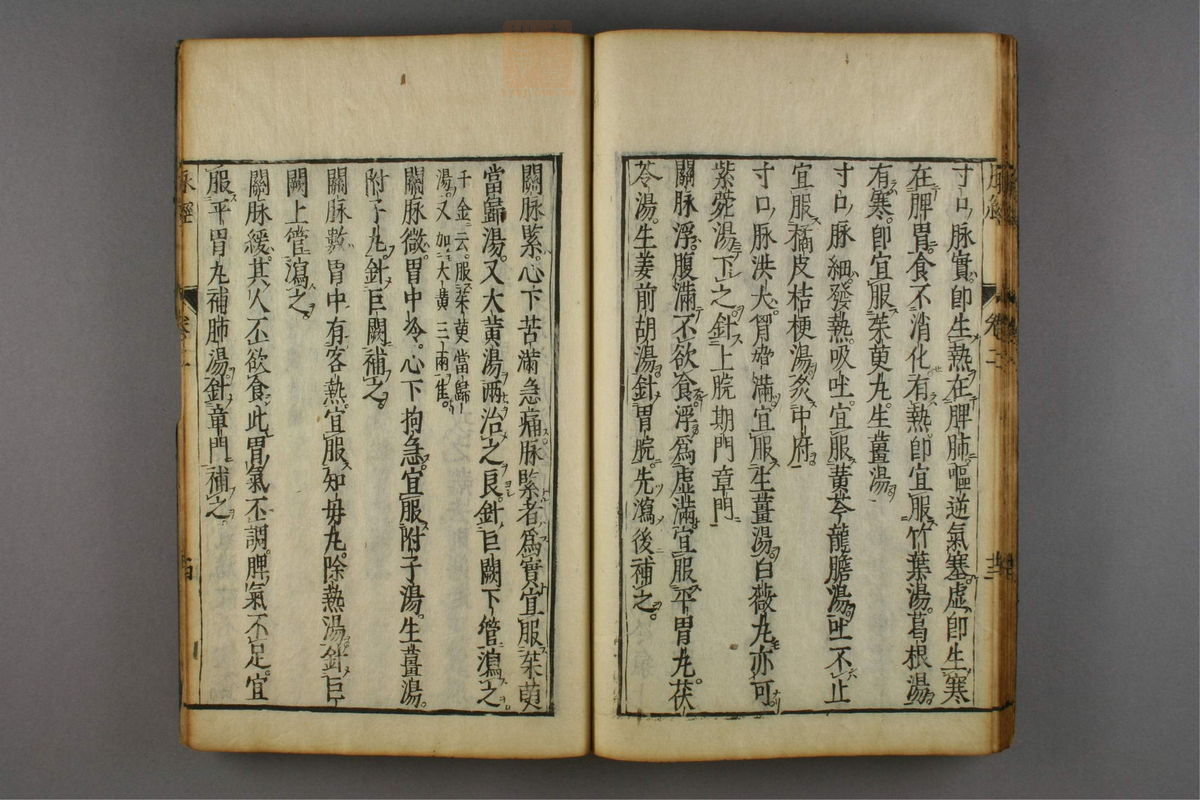 寸口脉實即生熱在脾肺嘔逆氣塞虛即生寒
在脾胃食不消化有熱即宜服竹葉湯葛根湯
有寒即宜服茱萸丸生薑湯
寸口脉細發熱吸吐宜服黃芩龍膽湯吐不止
宜服橘皮桔梗湯灸中府
寸口脉洪大胷脇滿宜服生薑湯白薇丸亦可
紫菀湯下之針上脘期門章門
關脉浮腹滿不欲食浮爲虛滿宜服平胃丸茯
苓湯生姜前胡湯針胃脘先瀉後補之
關脉緊心下苦滿急痛脉緊者爲實宜服茱萸
當歸湯又大黃湯兩治之良針巨闕下管瀉之
千金云服茱萸當歸
湯又加大黃三兩佳
關脉微胃中冷心下拘急宜服附子湯生薑湯
附子丸針巨闕補之
關脉數胃中有客熱宜服知毋丸除熱湯針巨
闕上管瀉之
關脉緩其人不欲食此胃氣不調脾氣不足宜
服平胃丸補肺湯針章門補之
脉經
卷二